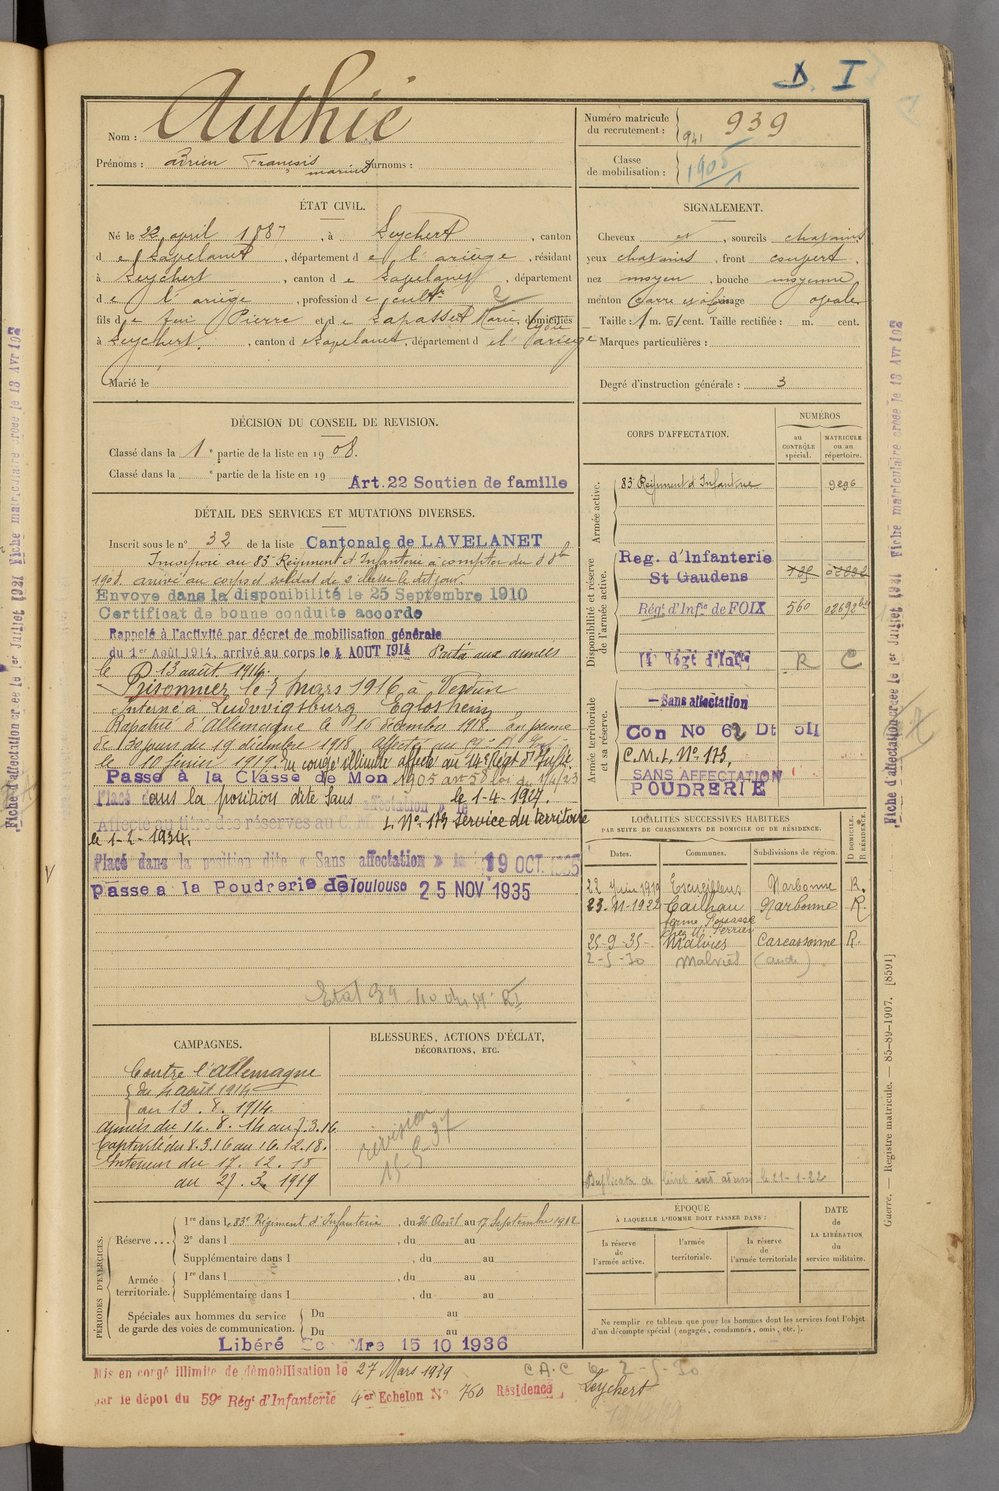 D. I
Nom : Authié
Prénoms : Adrien François Marius Surnoms :
Numéro matricule du recrutement : 941 939
Classe de mobilisation : 1905
ÉTAT CIVIL.
Né le 22 april 1887, à Leychert, canton
de Lapelanet, département de l'ariège, résidant
à Leychert, canton de Lapelanet, département
de l'ariège, profession de cultr
fils de feu Pierre et de Lapasset Marie, domiciliés
à Leychert, canton de Lapelanet, département de l'ariège
Marié le
SIGNALEMENT.
Cheveux et, sourcils chatains
yeux chatains, front couvert,
nez moyen, bouche moyenne
menton carré visage ovale
Taille : 1 m. 61 cent. Taille rectifiée : m. cent.
Marques particulières :
Degré d'instruction générale : 3
DÉCISION DU CONSEIL DE REVISION.
Classé dans la 1e partie de la liste en 1908.
Classé dans la e partie de la liste en 19
Art. 22 Soutien de famille
DÉTAIL DES SERVICES ET MUTATIONS DIVERSES.
Inscrit sous le n° 32 de la liste Cantonale de LAVELANET
Incorporé au 83 Régiment d'Infanterie à compter du 8 8bre
1908. arrivé au corps et soldat de 2e classe le dit jour.
Envoyé dans la disponibilité le 25 Septembre 1910
Certificat de bonne conduite accordé
Rappelé à l'activité par décret de mobilisation générale
du 1er Août 1914, arrivé au corps le 4 AOUT 1914 Parti aux armées
le 13 août 1914.
Prisonnier le 7 mars 1916 à Verdun
Interné à Ludwigsburg Eglosheim
Rapatrié d'Allemagne le 16 décembre 1918. En perme
de 30 jours du 19 décembre 1918. Affecté au
le 10 février 1919. En congé illimité affecté au 14e Régt d'Infie
Passé à la Classe de Mon 1905 art 58 loi du 1/4/23
Placé dans la position dite Sans affectation le 1-4-1927.
Affecté au titre des réserves au C. M. L. No 173 Service du territoire
le 1-2-1934.
Placé dans la position dite « Sans affectation » le 19 OCT. 1935
Passé à la Poudrerie de Toulouse 25 NOV 1935
CORPS D'AFFECTATION.
NUMÉROS
au CONTRÔLE spécial.
MATRICULE ou au répertoire.
Armée active.
83 Régiment d'Infanterie 9296
Disponibilité et réserve de l'armée active.
Reg. d'Infanterie
St Gaudens
Régt d'Infie de FOIX 560
14 Régt d'Infie R C
Armée territoriale et sa réserve.
Sans affectation
Con No 62 Dt 511
C.M.L. No 173.
SANS AFFECTATION
POUDRERIE
LOCALITÉS SUCCESSIVES HABITÉES
PAR SUITE DE CHANGEMENTS DE DOMICILE OU DE RÉSIDENCE.
D DOMICILE. R RÉSIDENCE.
Dates. Communes. Subdivisions de région.
22 Juin 1919 Escueillens Narbonne R.
23-11-1922 Cailhau Narbonne R.
25-9-35 Malviès Carcassonne R.
2-5-30 Malviès (aude)
Duplicata de livret ind. le 21-1-22
CAMPAGNES.
Contre l'Allemagne
du 4 août 1914
au 13.8.1914
armées du 14.8.14 au 7.3.16
Captivité du 8.3.16 au 16.12.18.
Intérieur du 17.12.18
au 27.3.1919
BLESSURES, ACTIONS D'ÉCLAT,
DÉCORATIONS, ETC.
révision
15-5-37
PÉRIODES D'EXERCICES.
Réserve ... 1re dans l 83e Régiment d'Infanterie, du 26 Août au 17 Septembre 1912
2e dans l , du au
Supplémentaire dans l , du au
Armée territoriale. 1re dans l , du au
Supplémentaire dans l , du au
Spéciales aux hommes du service de garde des voies de communication. Du au
Du au
Libéré Mre 15 10 1936
EPOQUE
À LAQUELLE L'HOMME DOIT PASSER DANS :
la réserve de l'armée active.
l'armée territoriale.
la réserve de l'armée territoriale
DATE de LA LIBÉRATION du service militaire.
Ne remplir ce tableau que pour les hommes dont les services font l'objet
d'un décompte spécial (engagés, condamnés, omis, etc.).
Mis en congé illimité de démobilisation le 27 Mars 1919
par le dépôt du 59e Régt d'Infanterie 4e Echelon No 760 Résidence Leychert
C.A.C le 2-5-30
Guerre. — Registre matricule. — 85-89-1907. [8591]
Fiche d'affectation créée le 1er Juillet 1921 Fiche matriculaire créée le 13 Avr 192